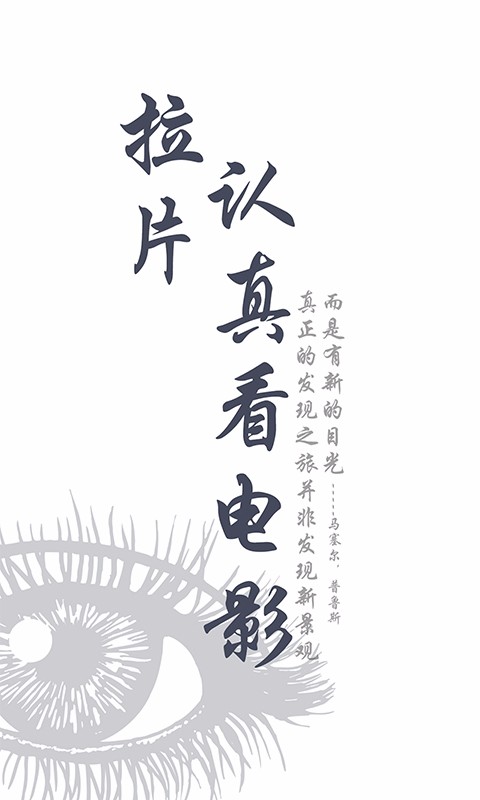 拉片
认真看电影
真正的发现之旅并非发现新景观
而是有新的目光
-----马塞尔.普鲁斯